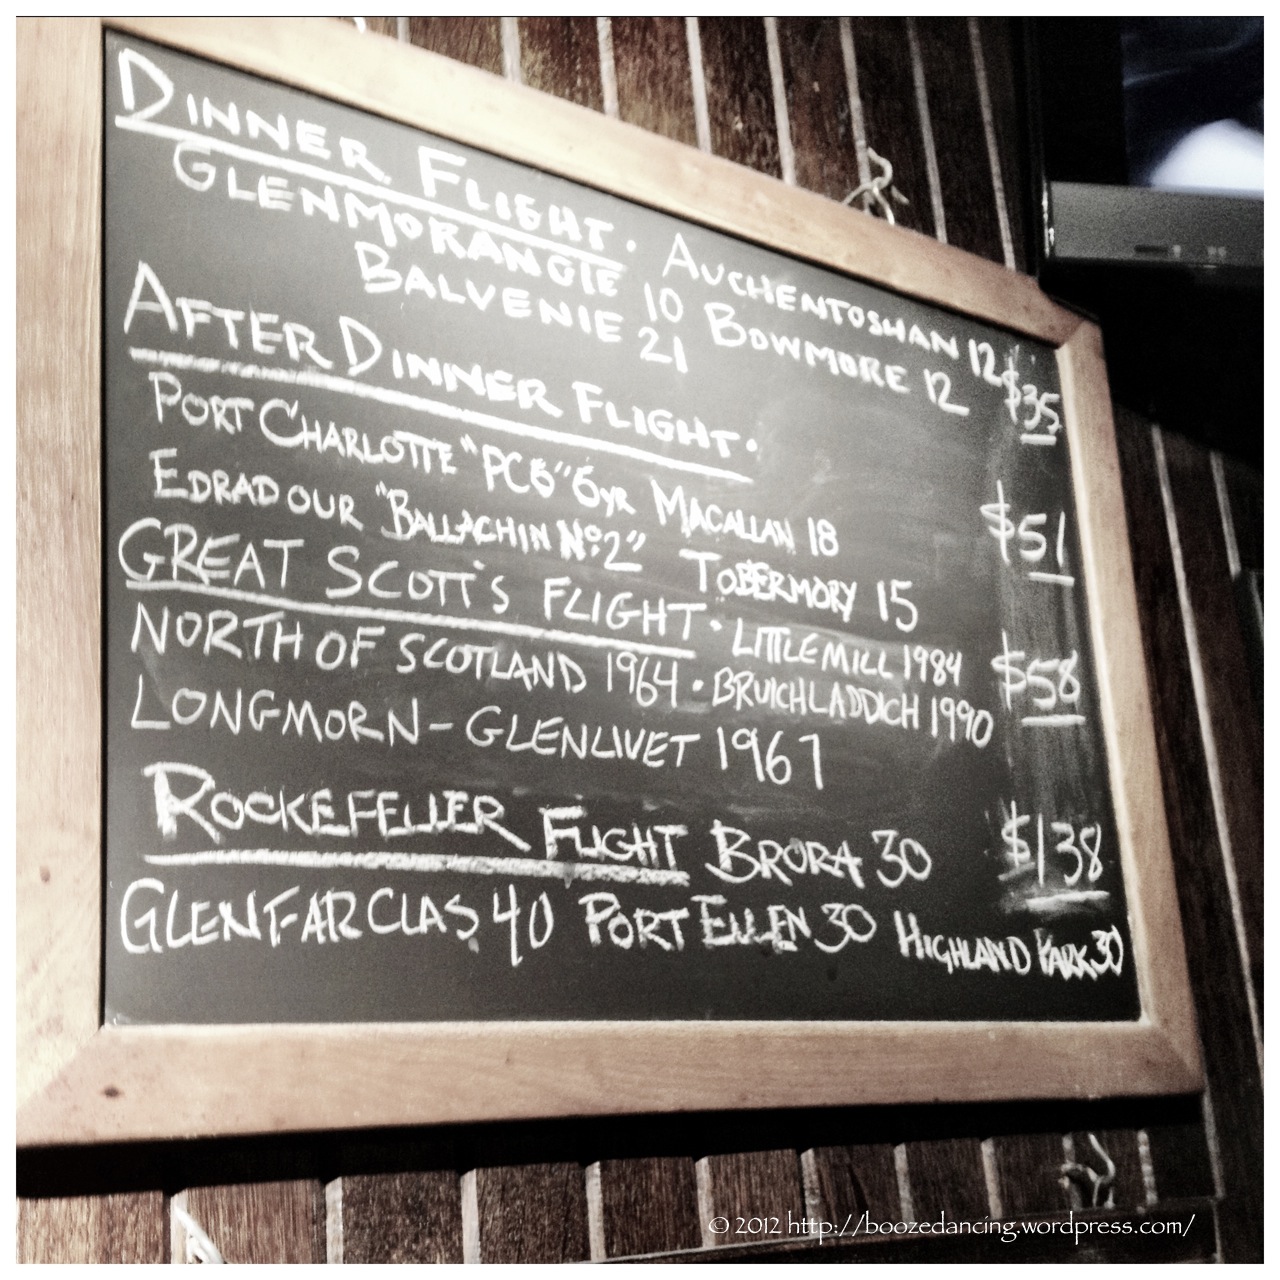 DINNER FLIGHT. AUCHENTOSHAN 12
GLENMORANGIE 10 BOWMORE 12 $35
BALVENIE 21
AFTER DINNER FLIGHT.
PORT CHARLOTTE "PC6" 6YR MACALLAN 18 $51
EDRADOUR "BALLACHIN No. 2" TOBERMORY 15
GREAT SCOTT'S FLIGHT. LITTLEMILL 1984 $58
NORTH OF SCOTLAND 1964 • BRUICHLADDICH 1990
LONGMORN-GLENLIVET 1967
ROCKEFELLER FLIGHT BRORA 30 $138
GLENFARCLAS 40 PORT ELLEN 30 HIGHLAND PARK 30
© 2012 http://boozedancing.wordpress.com/